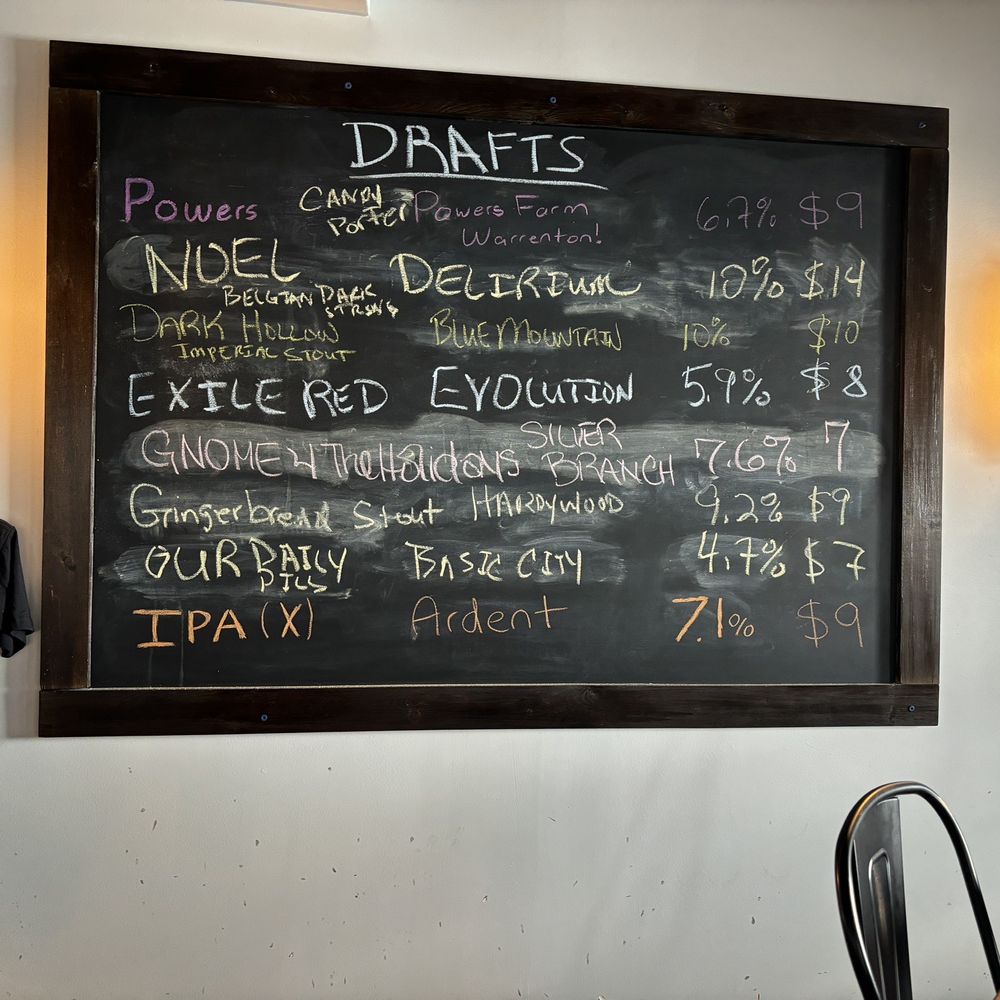 DRAFTS
Powers CANDY Porter Powers Farm Warrenton! 6.7% $9
NOEL BELGIAN DARK STRONG DELIRIUM 10% $14
DARK HOLLOW IMPERIAL STOUT BLUE MOUNTAIN 10% $10
EXILE RED EVOLUTION 5.9% $8
GNOME 4 The Holidays SILVER BRANCH 7.6% 7
Gringerbread Stout HARDYWOOD 9.2% $9
OUR DAILY PILS BASIC CITY 4.7% $7
IPA (X) Ardent 7.1% $9